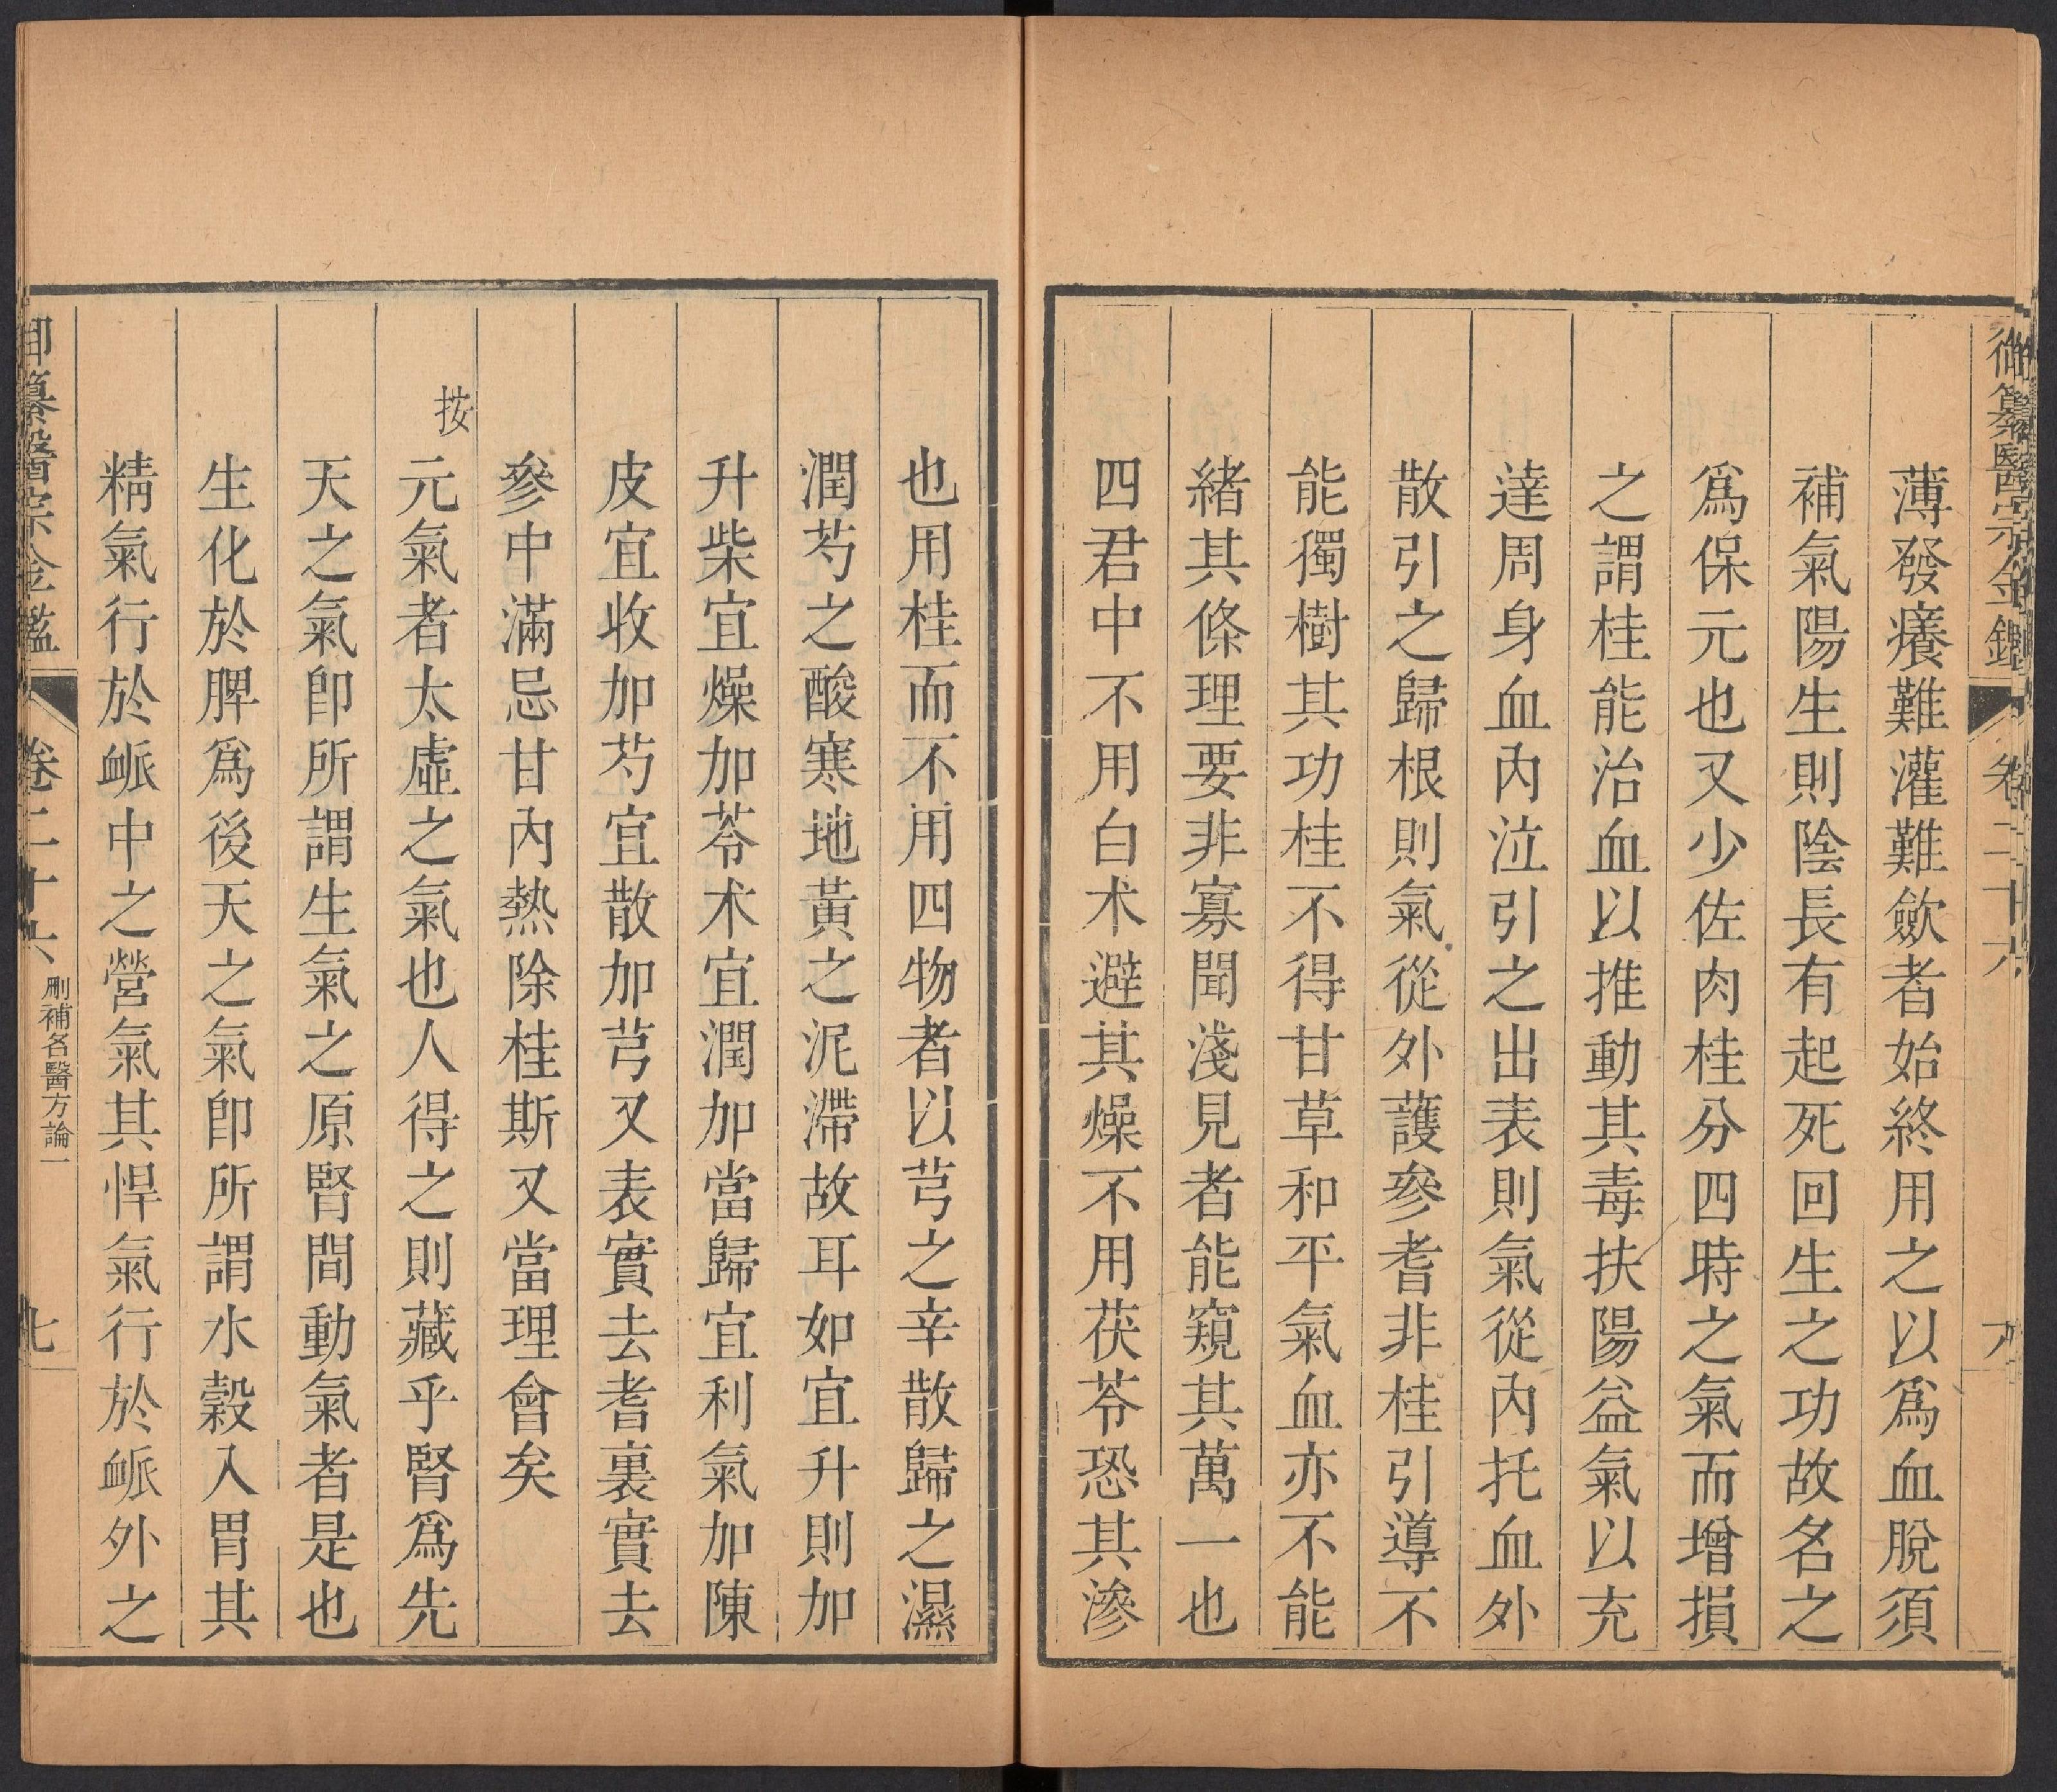 御纂醫宗金鑑 卷二十六
薄發癢難灌難歛者始終用之以爲血脫須
補氣陽生則陰長有起死回生之功故名之
爲保元也又少佐肉桂分四時之氣而增損
之謂桂能治血以推動其毒扶陽益氣以充
達周身血內泣引之出表則氣從內托血外
散引之歸根則氣從外護參耆非桂引導不
能獨樹其功桂不得甘草和平氣血亦不能
緒其條理要非寡聞淺見者能窺其萬一也
四君中不用白朮避其燥不用茯苓恐其滲
也用桂而不用四物者以芎之辛散歸之濕
潤芍之酸寒地黃之泥滯故耳如宜升則加
升柴宜燥加苓朮宜潤加當歸宜利氣加陳
皮宜收加芍宜散加芎又表實去耆裏實去
參中滿忌甘內熱除桂斯又當理會矣
按
元氣者太虛之氣也人得之則藏乎腎爲先
天之氣卽所謂生氣之原腎間動氣者是也
生化於脾爲後天之氣卽所謂水穀入胃其
精氣行於衇中之營氣其悍氣行於衇外之
御纂醫宗金鑑 卷二十六 刪補名醫方論一 七